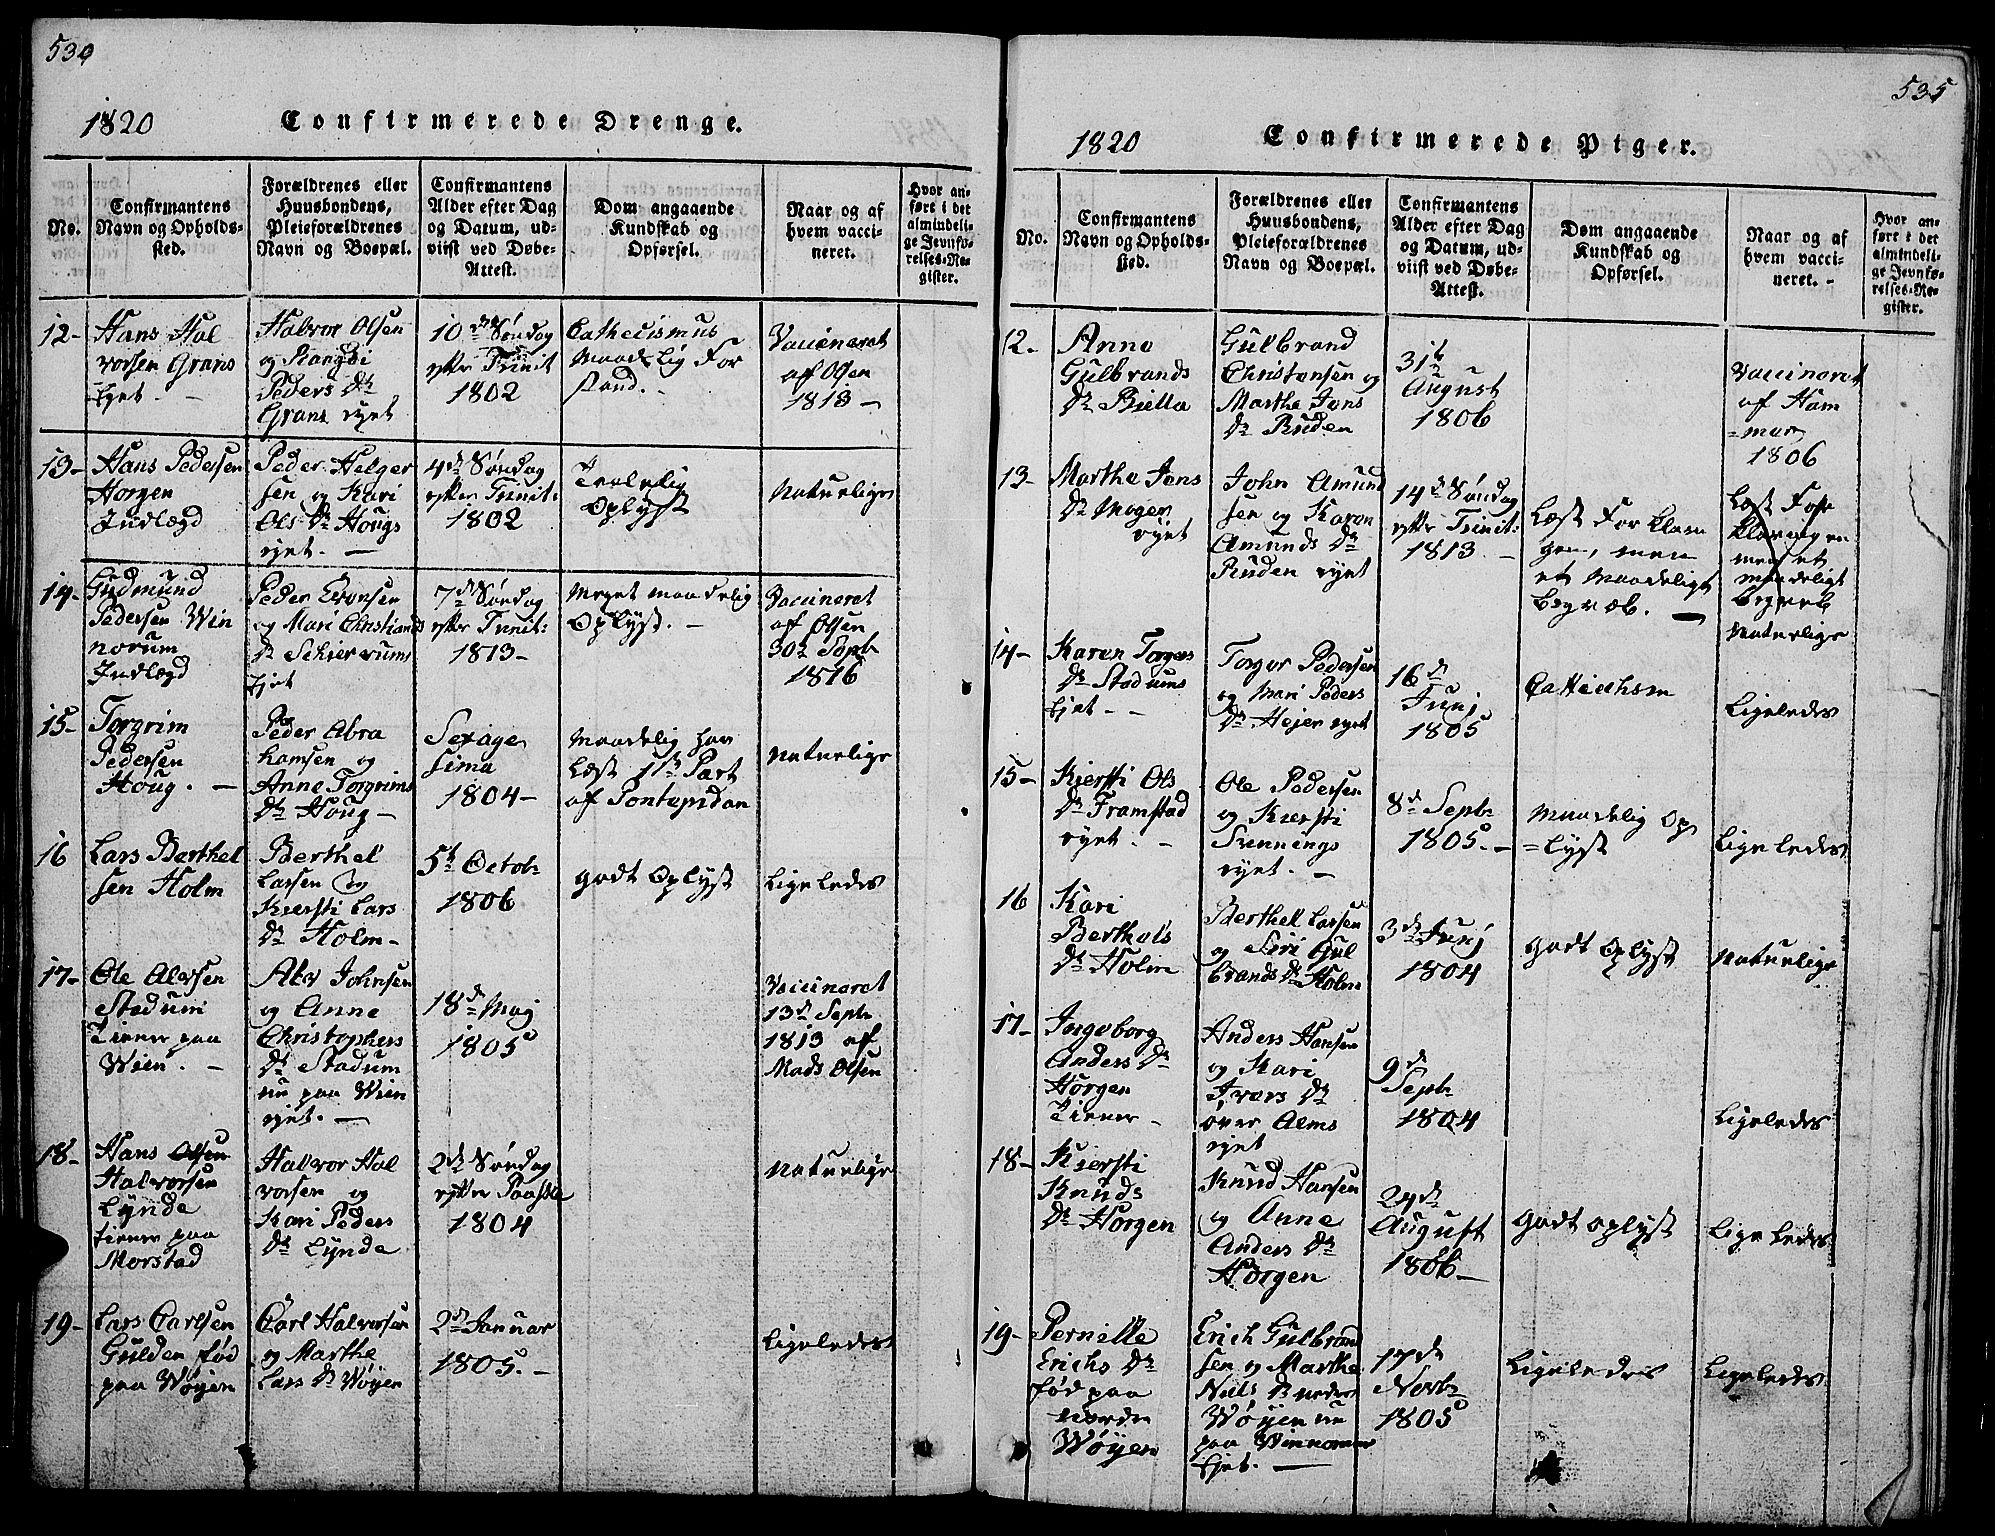 530
1820 Confirmerede Drenge.
No.
Confirmantens
Navn og Opholds-
sted.
Forældrenes eller
Huusbondens,
Pleieforældrenes
Navn og Boepæl.
Confirmantens
Alder efter Dag
og Datum, ud-
viist ved Døbe-
Attest.
Dom angaaende
Kundskab og
Opførsel.
Naar og af
hvem vacci-
neret.
Hvor an-
ført i det
almindeli-
ge Jevnfø-
relses-Re-
gister.
12-
Hans Hal
vorsen Grans
Ejet. -
Halvor Olsen
og Rangdi
Peders Dr
Grans ejet
10de Søndag
efter Trinit
1802
Cathecismus
Maadelig For
stand. -
Vaccineret
af Olsen
1813 -
13-
Hans Pedersen
Horgen
Indlægd
Peder Helger
sen og Kari
Ols Dr Hougs
ejet. -
4de Søndag
efter Trinit:
1802
Taalelig
Oplyst
Naturlige
14-
Gudmund
Pedersen Win
norum
Indlægd
Peder Evensen
og Mari Christians
Dr Schierrums
Ejet
7de Søndag
efter Trinit:
1813-
Meget maadelig
Oplyst. -
Vaccineret
af Olsen
30te Septbr
1816
15-
Torgrim
Pedersen
Houg. -
Peder Abra
hamsen og
Anne Torgrims
Dr Houg -
Sexage
sima
1804-
Maadelig har
Læst 1ste Part
af Pontopidan
Naturlige
16
Lars Berthel
sen Holm
Berthel
Larsen og
Kiersti Lars
Dr Holm-
5te Octobr
1806
godt Oplyst
Ligeledes
17-
Ole Alvsen
Stadum
Tiener paa
Wien. -
Alv Johnsen
og Anne
Christophers
Dr Stadum
nu paa Wien
ejet. -
18de Maj
1805
Vaccineret
13de Septbr
1813 af
Mads Olsen
18-
Hans Olsen
Halvorsen
Lynde
tiener paa
Morstad
Halvor Hal
vorsen og
Kari Peders
Dr Lynde
2de Søndag
efter Paaske
1804
Naturlige
19-
Lars Carlsen
Gulden fød
paa Wøyen
Carl Halvorsen
og Marthe
Lars Dr Wøyen
2de Januar
1805. -
Ligeledes
535
1820 Confirmerede Piger.
No.
Confirmantens
Navn og Opholds-
sted.
Forældrenes eller
Huusbondens,
Pleieforældrenes
Navn og Boepæl.
Confirmantens
Alder efter Dag
og Datum, ud-
viist ved Døbe-
Attest.
Dom angaaende
Kundskab og
Opførsel.
Naar og af
hvem vacci-
neret. -
Hvor an-
ført i det
almindeli-
ge Jevnfø-
relses-Re-
gister.
12-
Anne
Gulbrands
Dr Biella
Gulbrand
Christensen og
Marthe Jens
Dr Ruden
31te
August
1806
Vaccineret
af Ham
=mer
1806
13-
Marthe Jens
Dr Mogen
ejet
John Amund
sen og Karen
Amunds Dr
Ruden ejet
14de Søndag
efter Trinit:
1813. -
Læst Forklarin
gen, men
et Maadeligt
Begreb. -
Læst For
klaringen
men et
maadeligt
Begreb
Naturlige
14-
Karen Torgers
Dr Stadums
Ejet. -
Torger Pedersen
og Mari Peders
Dr Hejer ejet
16de
Junj
1805
Cattichsm
Ligeledes
15-
Kiersti Ols
Dr Framstad
ejet. -
Ole Pedersen
og Kiersti
Svennings
ejet. -
8de Septbr
1805. -
Maadelig Op
=lyst
Ligeledes
16
Kari
Berthels
Dr Holm
Berthel Larsen
og Siri Gul
brands Dr Holm
3de Junj
1804
godt Oplyst
Naturlige
17-
Ingeborg
Anders Dr
Horgen
Tiener -
Anders Hansen
og Kari
Ivers Dr
over Alms
ejet
9de
Septbr
1804
Ligeledes
18-
Kiersti
Knuds
Dr Horgen
Knud Hansen
og Anne
Anders Dr
Horgen
24de
August
1806-
godt oplyst
Ligeledes
19-
Pernille
Erichs Dr
fød paa
nordre
Wøyen
Erich Gulbrand
sen og Marthe
Niels Dr nedre
Wøyen nu
paa Winnorum
Ejet. -
17de
Novbr
1805
Ligeledes
Ligeledes